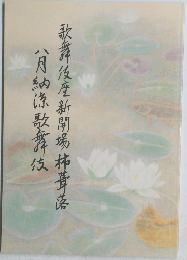 歌舞伎座新開場 柿葺落
八月納涼歌舞伎